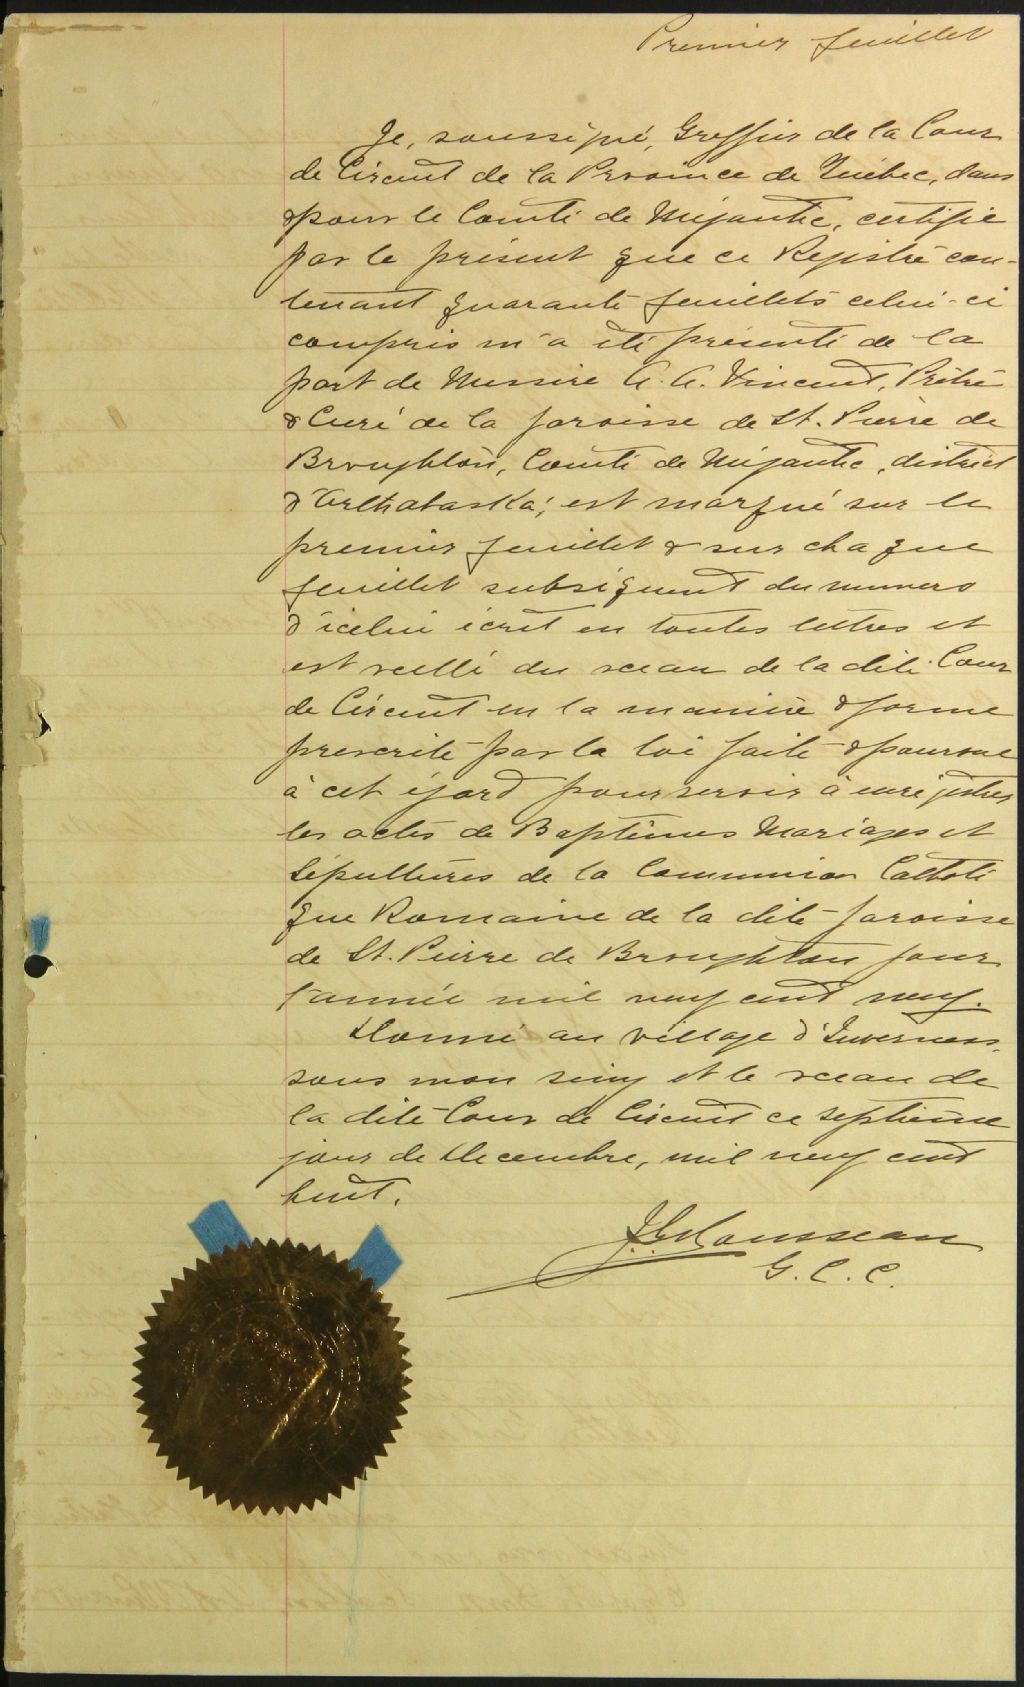 Premier feuillet
Je, soussigné, Greffier de la Cour
de Circuit de la Province de Québec, dans
& pour le Comté de Mégantic, certifie
par le présent que ce Registre con-
tenant quarante feuillets celui-ci
compris m'a été présenté de la
part de Messire A. A. Vincent, Prêtre
& Curé de la paroisse de St. Pierre de
Broughton, Comté de Mégantic, district
d'Arthabaska; est marqué sur le
premier feuillet & sur chaque
feuillet subséquent du numero
d'icelui écrit en toutes lettres et
est scellé du sceau de la dite Cour
de Circuit en la manière & forme
prescrite par la loi faite & pourvue
à cet égard pour servir à enregistrer
les actes de Baptêmes Mariages et
Sépultures de la Communion Catholi
que Romaine de la dite paroisse
de St. Pierre de Broughton pour
l'année mil neuf cent neuf.
Donné au village d'Inverness,
sous mon seing et le sceau de
la dite Cour de Circuit ce septième
jour de Decembre, mil neuf cent
huit.
Rousseau
G. C. C.